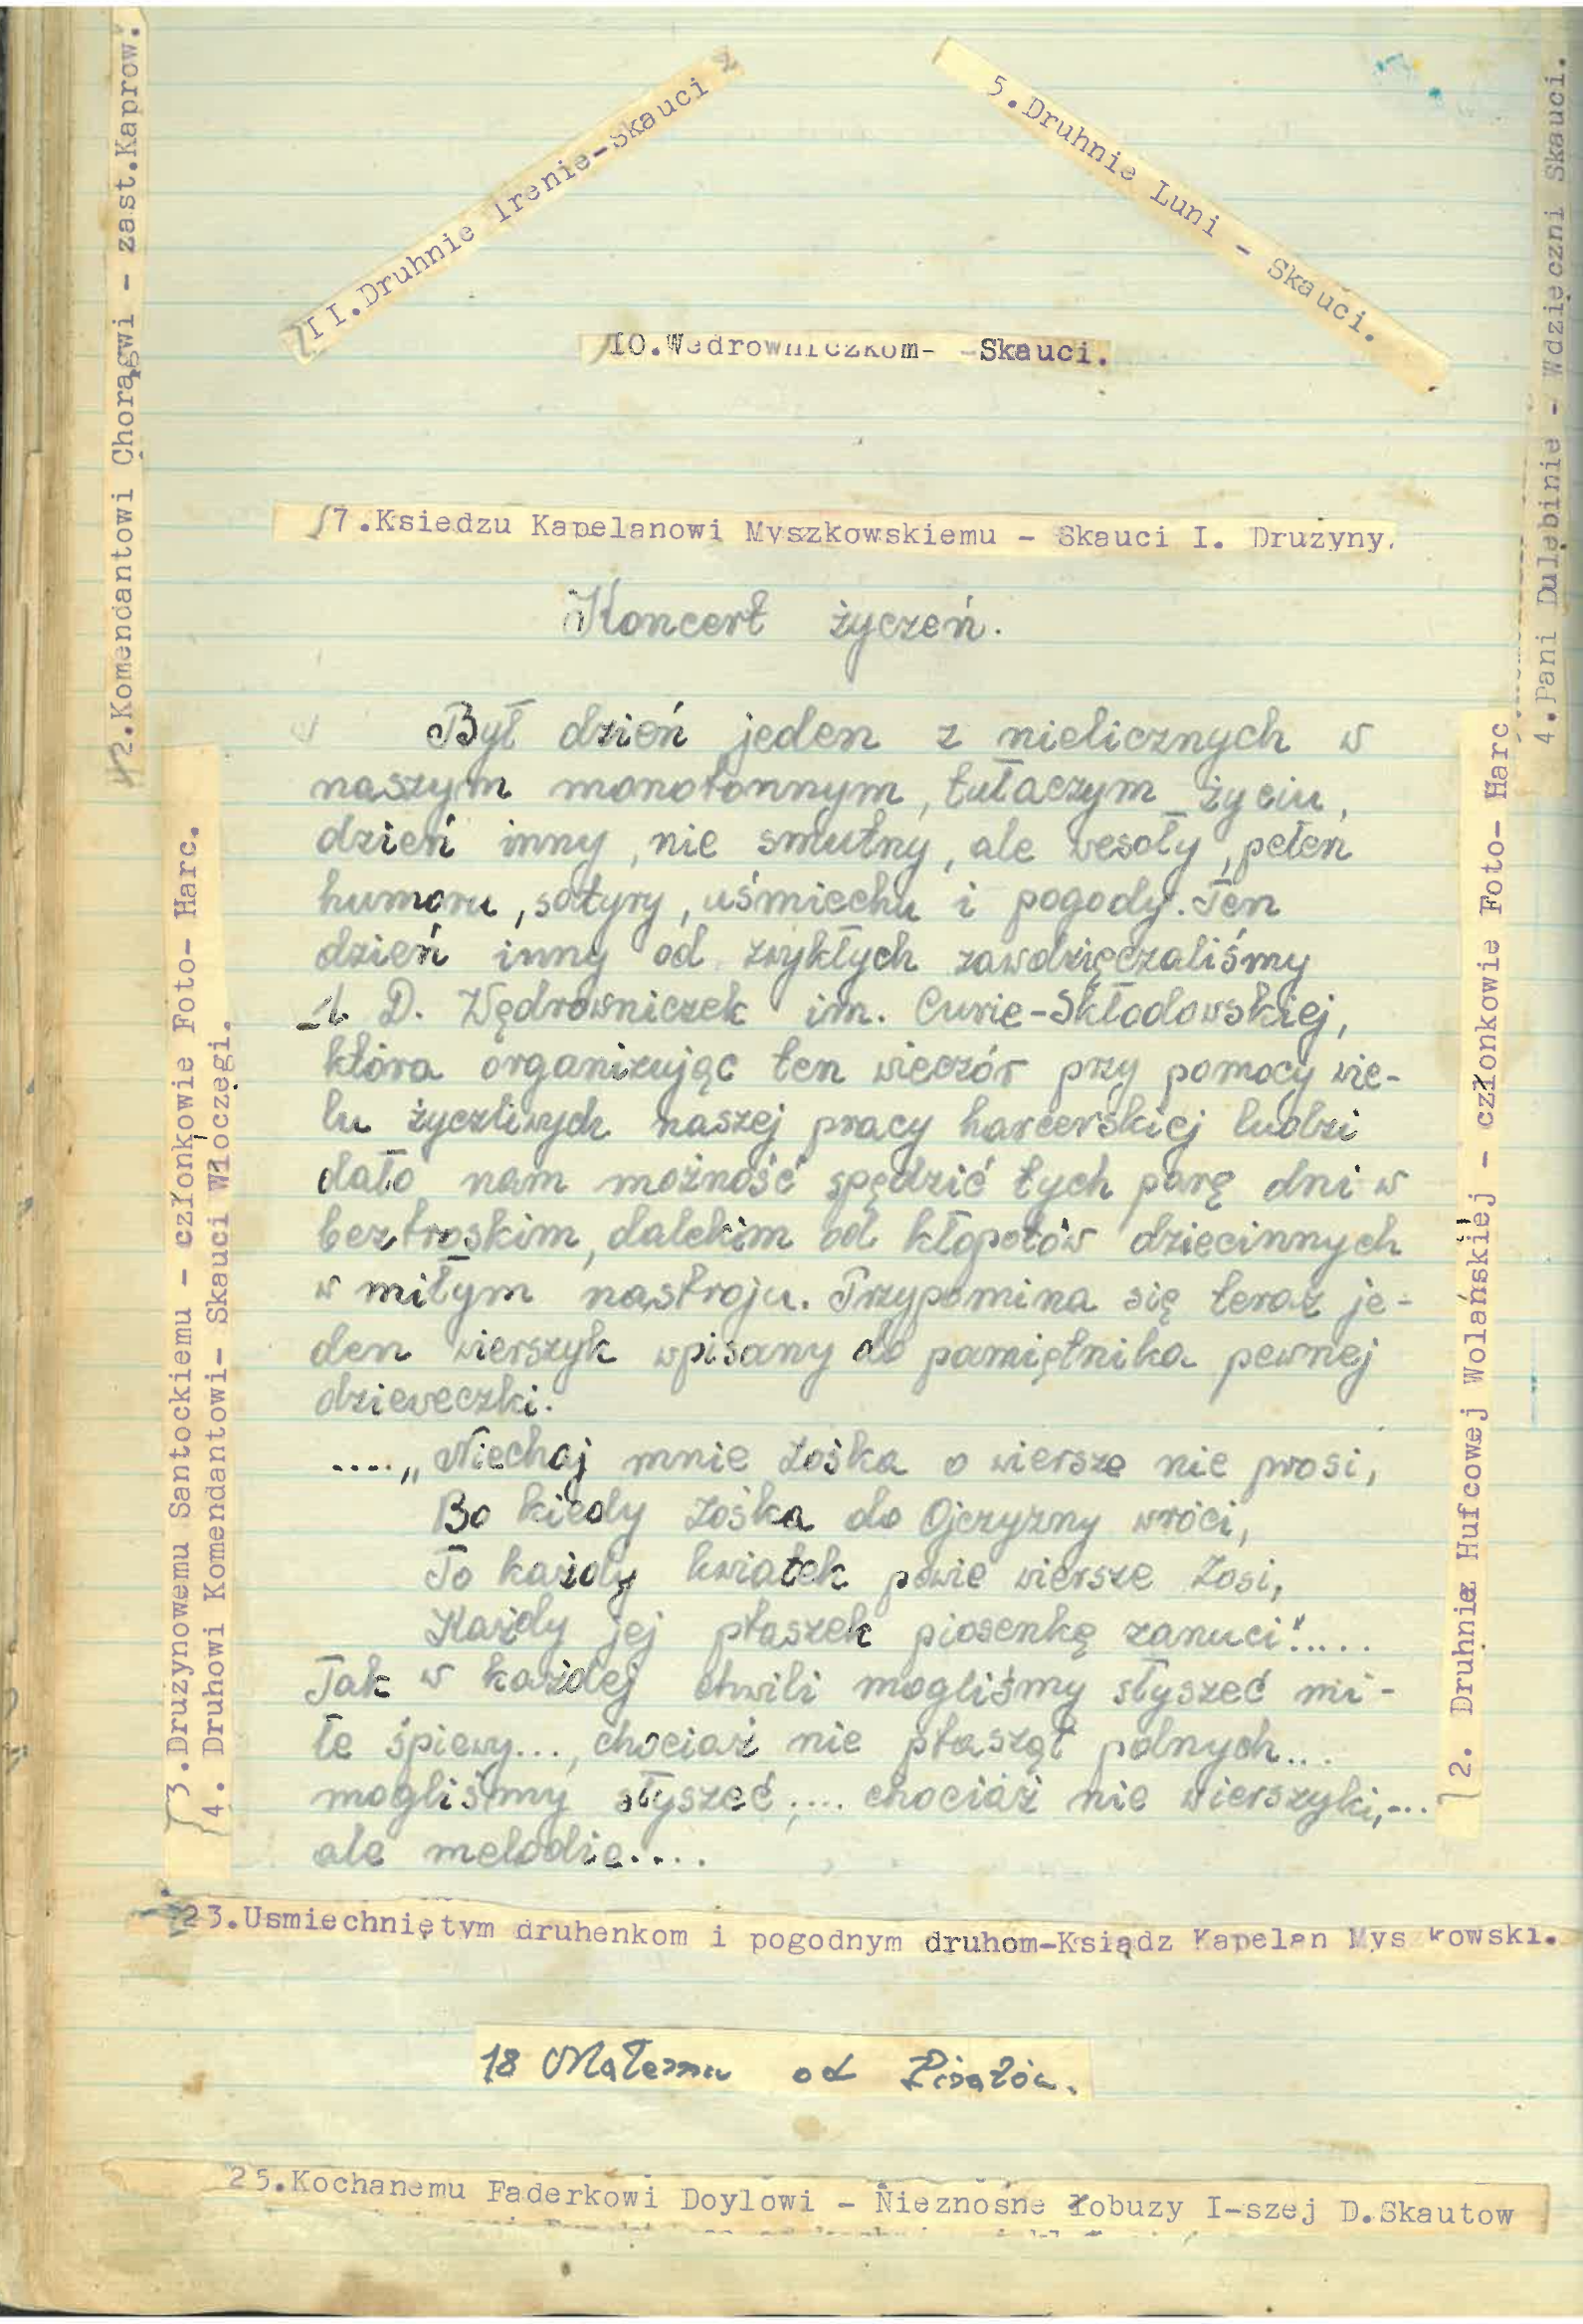 42.Komendantowi Chorągwi - zast.Kaprow.
II.Druhnie Irenie-Skauci
5.Druhnie Luni - Skauci.
4.Pani Dulębinie - Wdzięczni Skauci.
IO.Wędrowniczkom- -Skauci.
7.Ksiedzu Kapelanowi Myszkowskiemu - Skauci I. Drużyny.
Koncert życzeń.
Był dzień jeden z nielicznych w
naszym monotonnym, tułaczym życiu,
dzień inny, nie smutny, ale wesoły, pełen
humoru, satyry, uśmiechu i pogody. Ten
dzień inny od zwykłych zawdzięczaliśmy
1. D. Wędrowniczek im. Curie-Skłodowskiej,
która organizując ten wieczór przy pomocy wie-
lu życzliwych naszej pracy harcerskiej ludzi
dało nam możność spędzić tych parę dni w
beztroskim, dalekim od kłopotów dziecinnych
w miłym nastroju. Przypomina się teraz je-
den wierszyk wpisany do pamiętnika pewnej
dzieweczki.
....„Niechaj mnie Zośka o wiersze nie prosi,
Bo kiedy Zośka do Ojczyzny wróci,
To każdy kwiatek powie wiersze Zosi,
Każdy jej ptaszek piosenkę zanuci".....
Tak w każdej chwili mogliśmy słyszeć mi-
łe śpiewy..., chociaż nie ptasząt polnych...
mogliśmy słyszeć,.... chociaż nie wierszyki,...
ale melodie....
3.Drużynowemu Santockiemu - członkowie Foto- Harc.
4. Druhowi Komendantowi- Skauci Włoczęgi.
2. Druhnie Hufcowej Wolańskiej - członkowie Foto- Harc
23.Usmiechniętym druhenkom i pogodnym druhom-Ksiądz Kapelan Mys kowski.
18 od
25.Kochanemu Faderkowi Doylowi - Nieznośne łobuzy I-szej D.Skautow